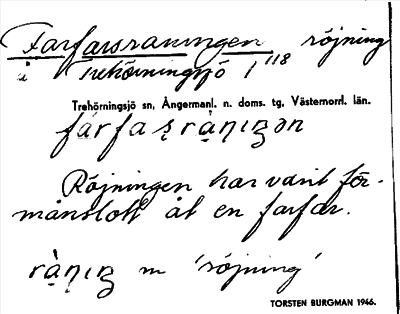 Farfarsraningen röjning
å Trehörningsjö 1¹¹⁸
Trehörningsjö sn, Ångermanl. n. doms. tg, Västernorrl. län.
fárfaṣràṇıŋən
Röjningen har varit för-
månslott åt en farfar.
ràṇıŋ m 'röjning'
TORSTEN BURGMAN 1946.